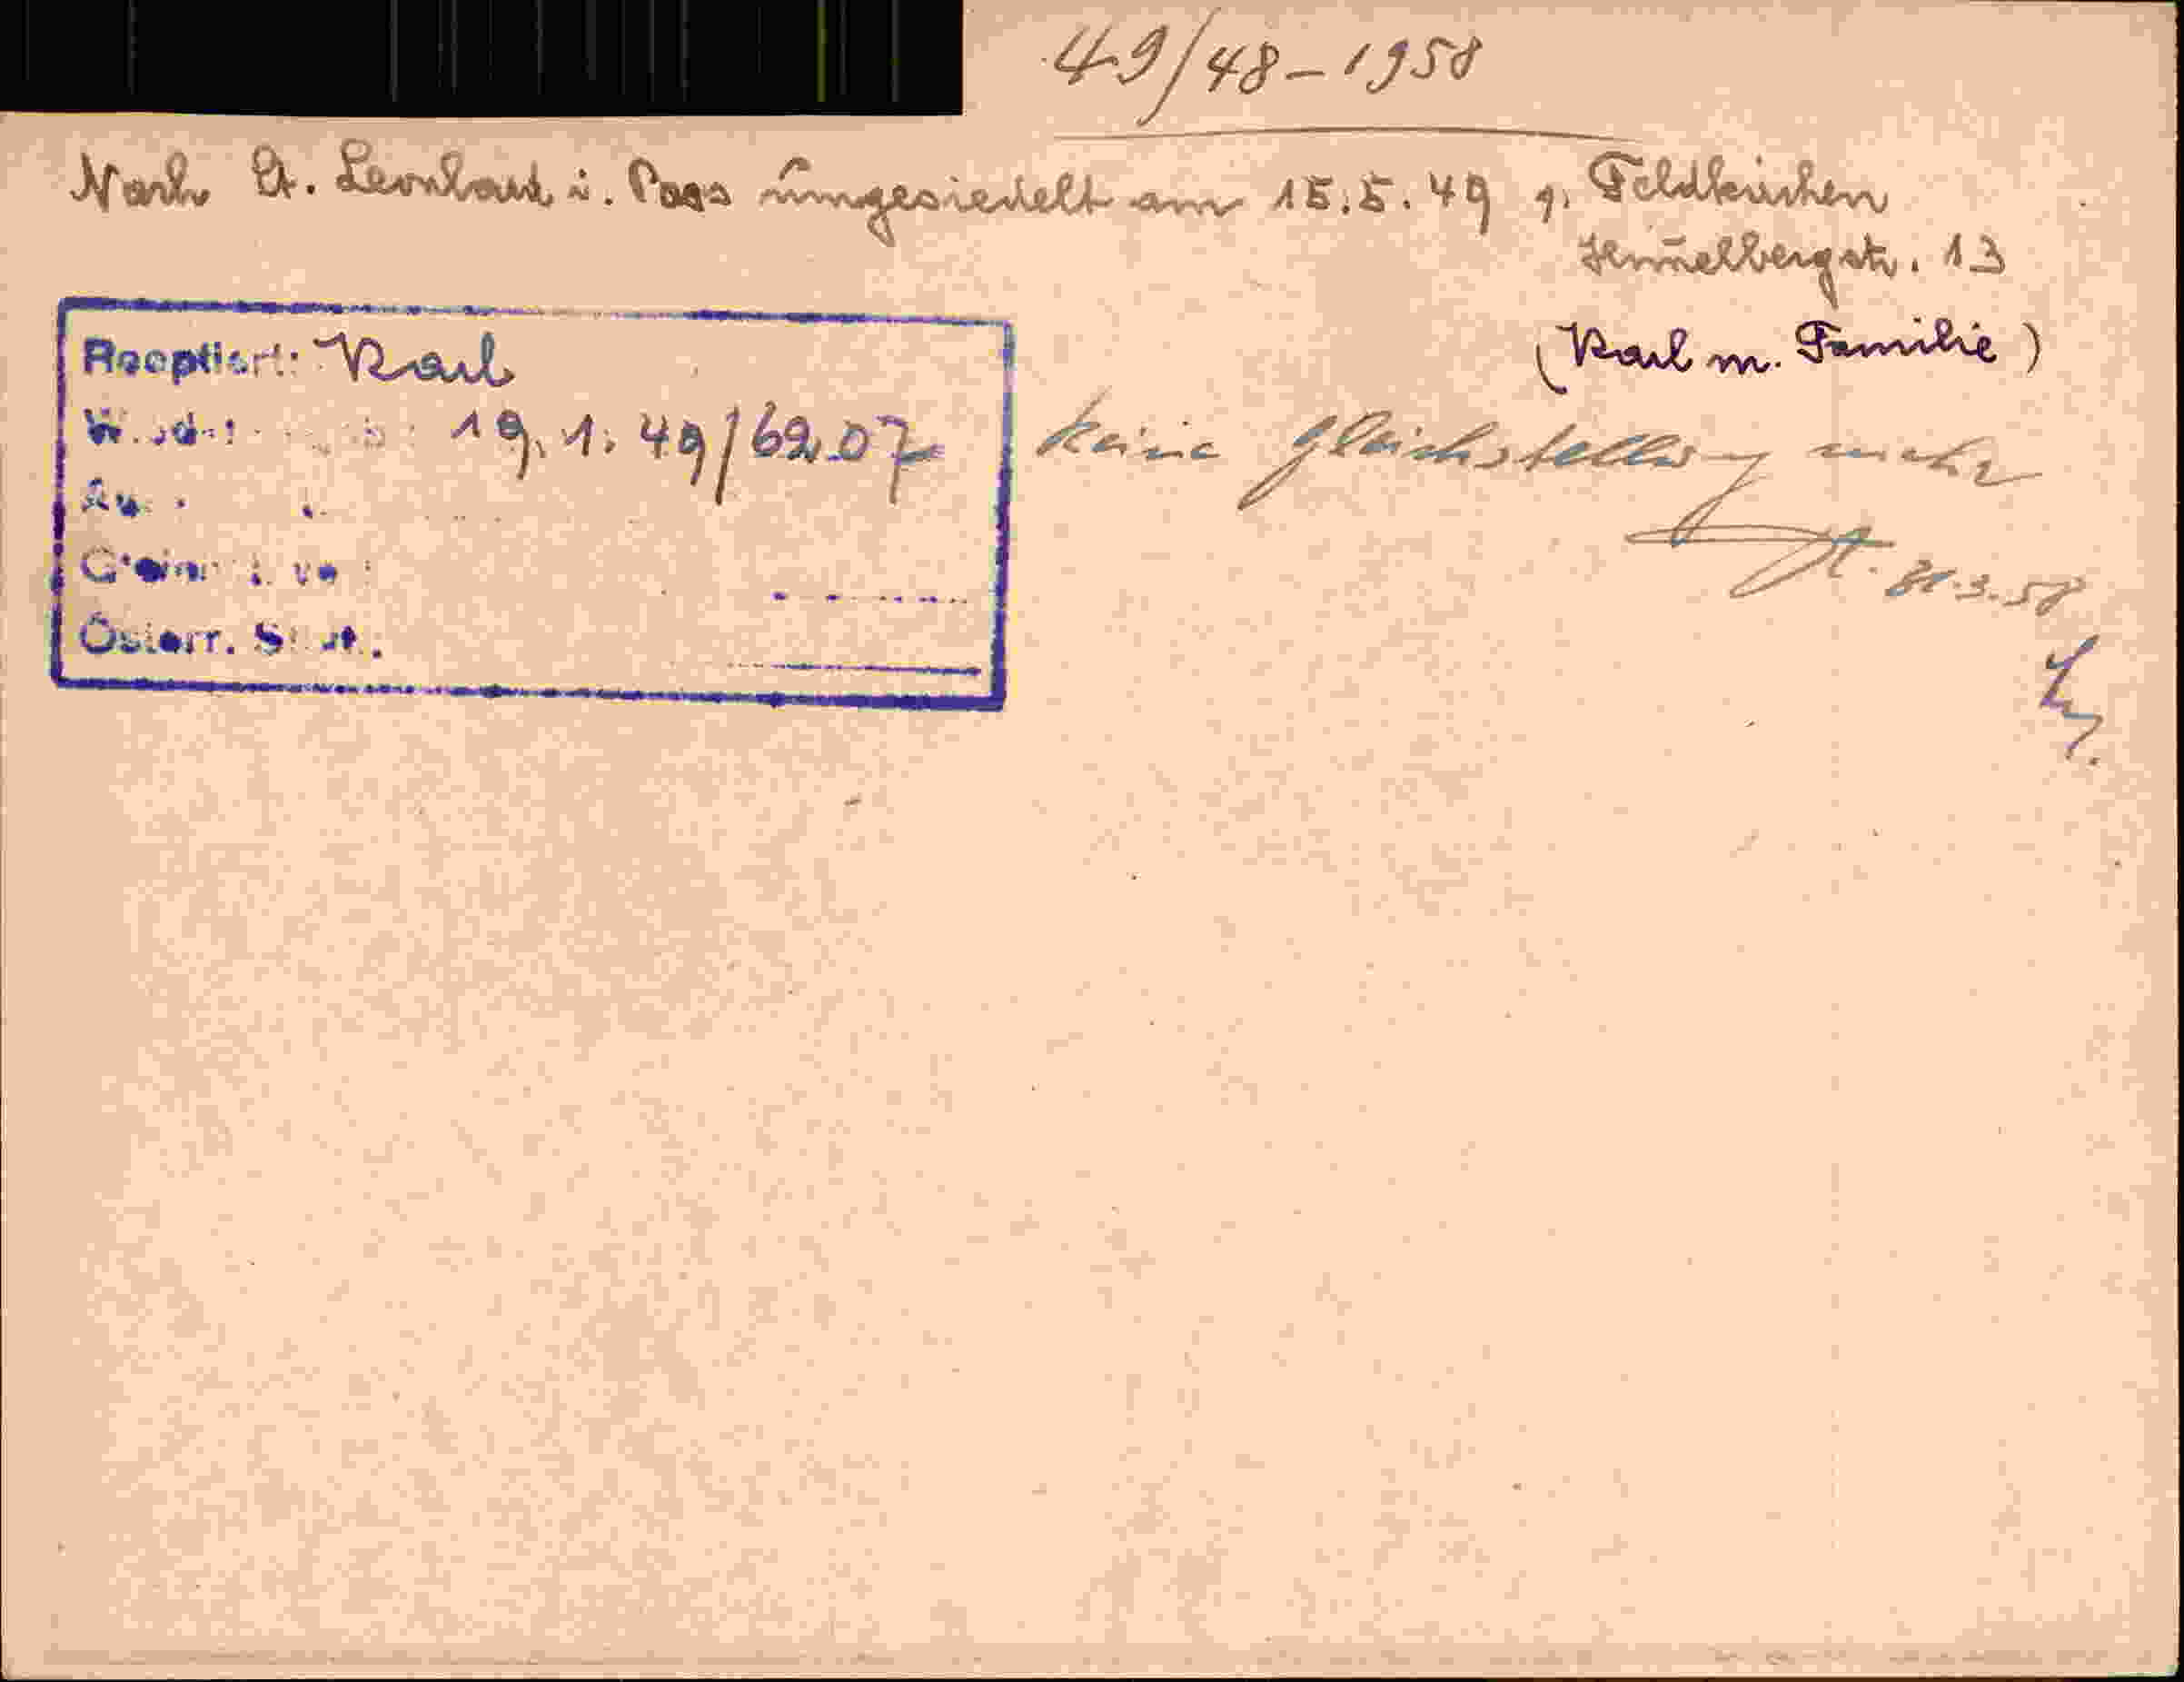 49/48-1958
Nach St. Leonhard i. Pass umgesiedelt am 15.5.49 v. Feldkirchen
Himmelbergstr. 13
(Karl m. Familie)
Reoptiert: Karl
19.1.49/6207
keine Gleichstellung mehr
31.3.58
Österr.